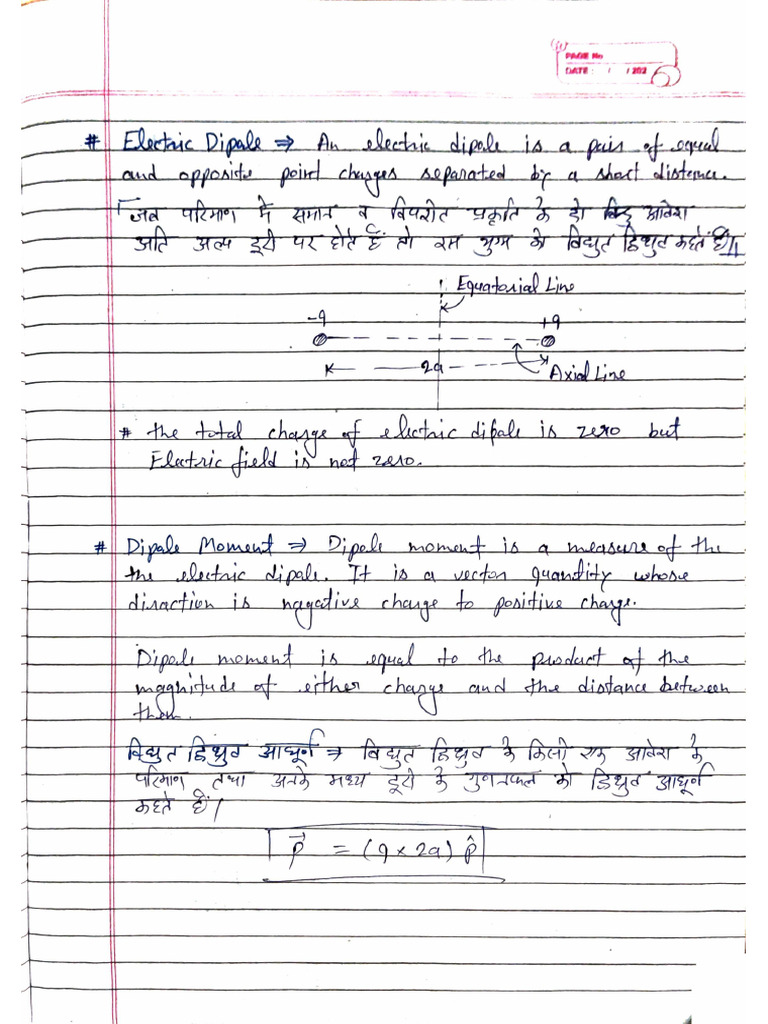 PAGE No
DATE: / /202
# Electric Dipale ⇒ An electric dipale is a pair of equal
and opposite point charges separated by a short distance.
जब परिमाण में समान व विपरीत प्रकृति के दो बिंदु आवेश
अति अल्प दूरी पर होते हैं तो इस युग्म को विद्युत द्विध्रुव कहते हैं।।
Equatorial Line
-q +q
2a
Axial Line
# the total charge of electric dipale is zero but
Electric field is not zero.
# Dipale Moment ⇒ Dipale moment is a measure of the
the electric dipale. It is a vector quantity whose
diraction is nagative charge to positive charge.
Dipale moment is equal to the product of the
magnitude of either charge and the distance between
them.
विद्युत द्विध्रुव आघूर्ण ⇒ विद्युत द्विध्रुव के किसी एक आवेश के
परिमाण तथा उनके मध्य दूरी के गुणनफल को द्विध्रुव आघूर्ण
कहते हैं।
p⃗ = (q × 2a) p̂